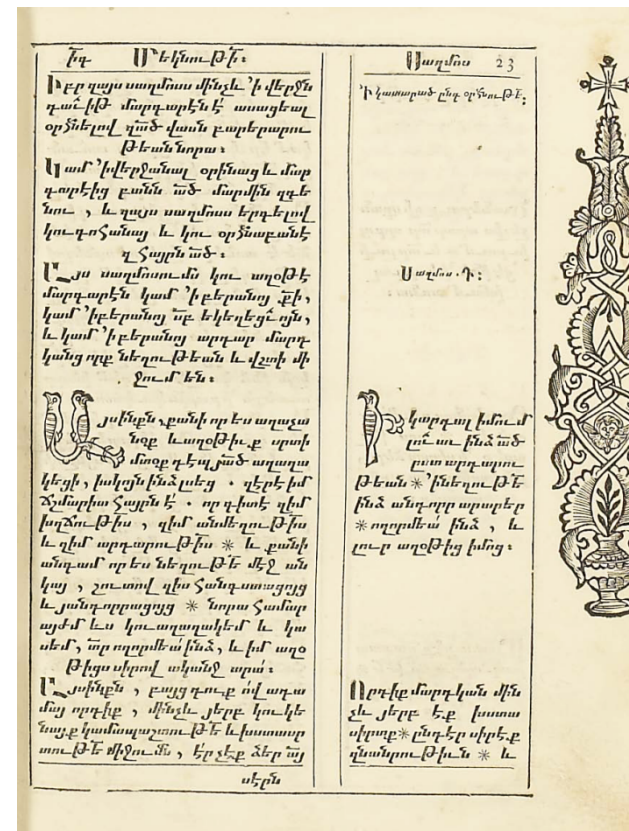 ԻԴ Մեկնութի՟։
Իբր զայս սաղմոսս մինչև ՚ի վերջն
դաւ՟իթ մարգարէն է՛ ասացեալ
օրհնելով զա՟ծ վասն բարերարու
թեան նորա։
Կամ ՚իվերջանալ օրինաց և մար
գարէից բանն ա՟ծ մարմին զգե
նու , և զայս սաղմոսս երգելով
կու գոհանայ և կու օրհնաբանէ
զհայրն ա՟ծ։
Այս սաղմոսումս կու աղօթէ
մարգարէն կամ ՚ի բերանոյ ք՟ի,
կամ ՚իբերանոյ ս՟բ եկեղեցւ՟ոյն,
և կամ ՚իբերանոյ արդար մարդ
կանց որք նեղութեան և վշտի մի
ջում են։
Այսինքն , քանի որ ես աղաչա
նօք և աղօթիւք սրտի
մտօք դէպ յա՟ծ աղաղա
կեցի , իսկոյն ինձ լսեց . զէրէ իմ
ճշմարիտ հայրն է՛ . որ գիտէ զիմ
խղճութիս , զիմ անմեղութիս
և զիմ արդարութիս * և քանի
անգամ որ ես նեղութե՟ մէջ ան
կայ , շուտով զիս հանգստացոյց
և յանդորրացոյց * նորա համար
այժմ ևս կու աղաղակեմ և կա
սեմ , տ՟ր ողորմեա՛ ինձ , և իմ աղօ
թիցս սիրով ականջ արա՛։
Այսինքն , բայց դուք ո՛վ ադա
մայ որդիք , մինչև յերբ կու կե
նայք կամապաշտութե՟ և խստասր
տութե՟ միջումն , է՛ր չէք ձեր տ՟յ
սէրն
Սաղմոս 23
՚Ի կատարած ընդ օրհնութե՟։
Սաղմոս . Դ։
Ի կարդալ իմում
լո՟ւ աւ ինձ ա՟ծ
ըստ արդարու
թեան * ՚ինեղութե՟
ինձ անդորր արարեր
* ողորմեա՛ ինձ , և
լուր աղօթից իմոց։
Որդիք մարդկան մին
չև յերբ էք խստա
սիրտք * ընդէր սիրէք
զնանրութիւն * և